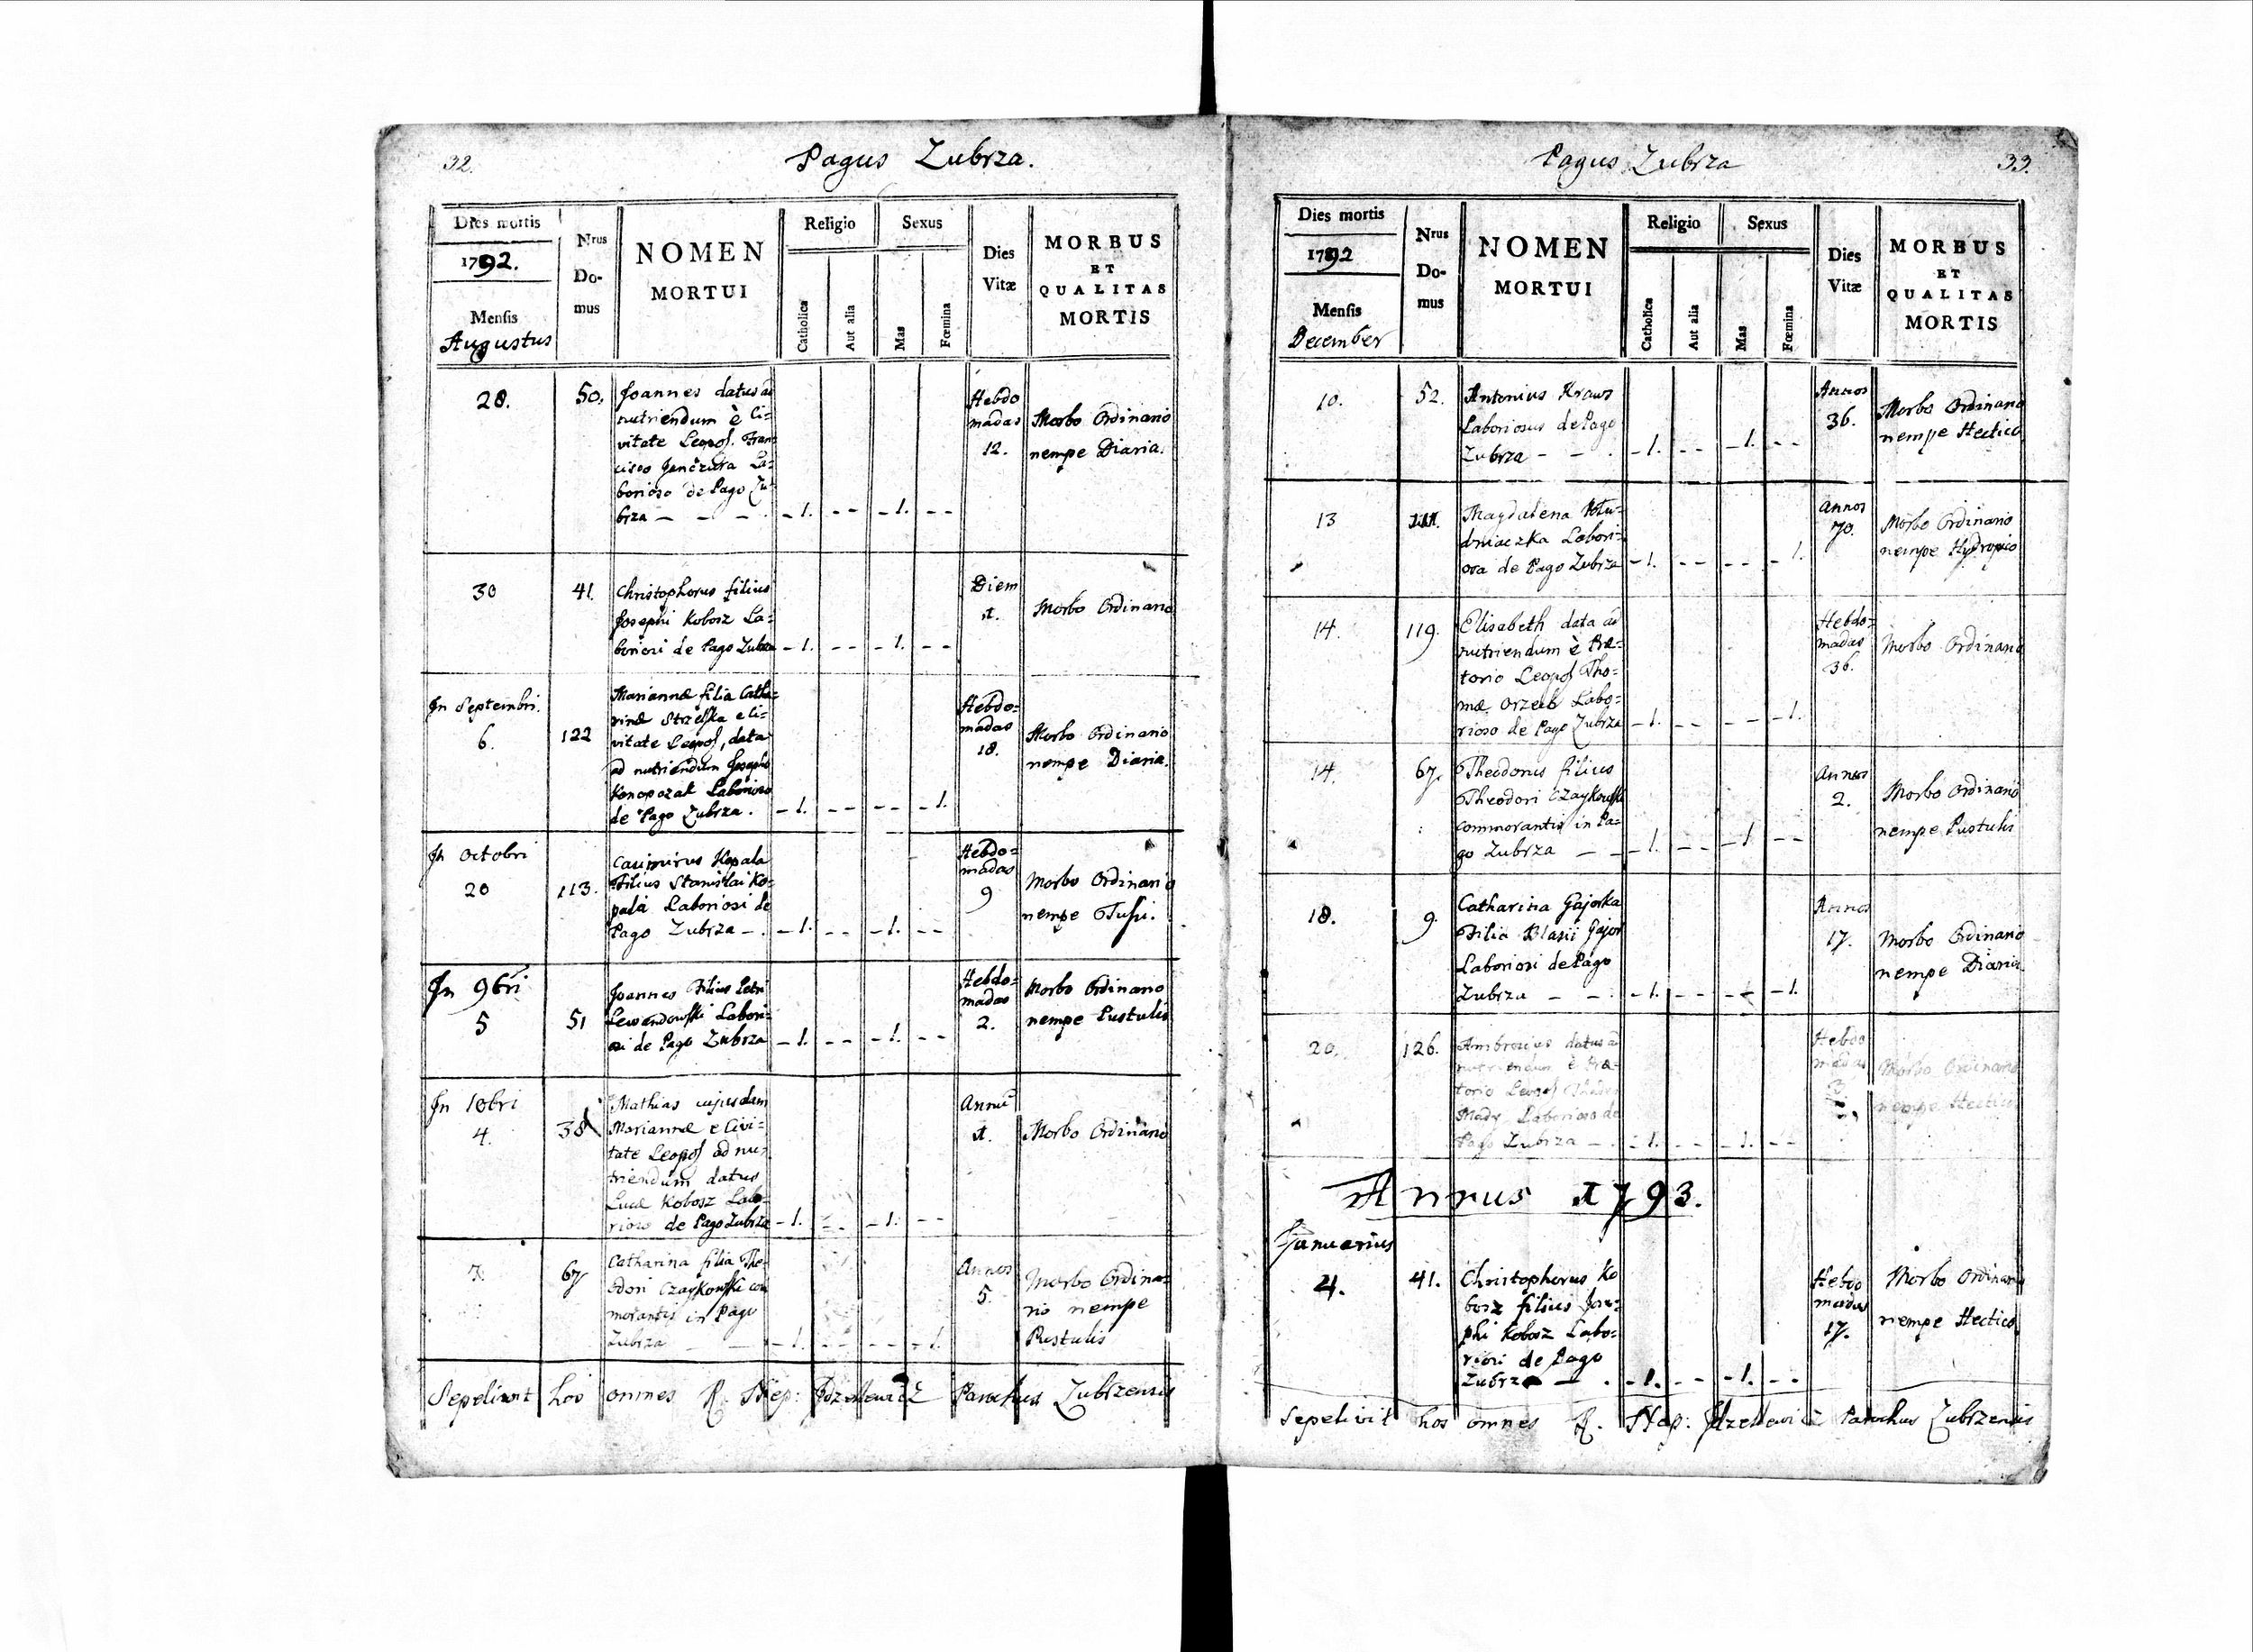 32.
Pagus Zubrza.
Dies mortis
1792.
Mensis
Augustus
Nrus
Do-
mus
NOMEN
MORTUI
Religio
Catholica
Aut alia
Sexus
Mas
Fœmina
Dies
Vitæ
MORBUS
ET
QUALITAS
MORTIS
28.
50.
Joannes datus ad
nutriendum è Ci=
vitate Leopol. Fran=
cisco Janczura La=
borioso de Pago Zu=
brza — — —
- 1. - - - 1. - -
Hebdo
madas
12.
Morbo Ordinario
nempe Diaria.
30
41.
Christophorus filius
Josephi Kobosz La=
boriosi de Pago Zubrza
- 1. - - - 1. - -
Diem
1.
Morbo Ordinario
In Septembri.
6.
122
Mariannæ filia Catha=
rinæ Strzelska e Ci=
vitate Leopol, data
ad nutriendum Josepho
Konopczak Laborioso
de Pago Zubrza.
- 1. - - - - - 1.
Hebdo=
madas
18.
Morbo Ordinario
nempe Diaria.
In Octobri
20
113.
Casimirus Kopala
Filius Stanislai Ko=
pala Laboriosi de
Pago Zubrza — .
- 1. - - - 1. - -
Hebdo=
madas
9
Morbo Ordinario
nempe Tussi.
In 9bri
5
51
Joannes Filius Petri
Lewandowski Labori=
osi de Pago Zubrza
- 1. - - - 1. - -
Hebdo=
madas
2.
Morbo Ordinario
nempe Pustulis
In 10bri
4.
38
Mathias cujusdam
Mariannæ e Civi=
tate Leopol ad nu=
triendum datus
Lucæ Kobosz Labo=
rioso de Pago Zubrza
- 1. - - - 1. - -
Annū
1.
Morbo Ordinario
7.
67
Catharina filia The=
odori Czaykowski com
morantis in Pago
Zubrza — —
- 1. - - - - - 1.
Annos
5.
Morbo Ordina=
rio nempe
Pustulis
Sepelivit hos omnes R. Step: Parochus Zubrzensis
Pagus Zubrza
33.
Dies mortis
1792
Mensis
December
Nrus
Do-
mus
NOMEN
MORTUI
Religio
Catholica
Aut alia
Sexus
Mas
Fœmina
Dies
Vitæ
MORBUS
ET
QUALITAS
MORTIS
10.
52.
Antonius Kraus
Laboriosus de Pago
Zubrza - - .
- 1. - - - 1. - -
Annos
36.
Morbo Ordinario
nempe Hectica
13
111.
Magdalena
Labori=
osa de Pago Zubrza
- 1. - - - - - 1.
Annos
70.
Morbo Ordinario
nempe Hydropico
14.
119.
Elisabeth data ad
nutriendum è Præ=
torio Leopol Tho=
mæ Orzech Labo=
rioso de Pago Zubrza
- 1. - - - - - 1.
Hebdo=
madas
36.
Morbo Ordinario
14.
67.
Theodorus filius
Theodori Czaykowski
commorantis in Pa=
go Zubrza — —
- 1. - - - 1 - -
Annos
2.
Morbo Ordinario
nempe Pustulis
18.
9.
Catharina Gajorka
Filia Blasii Gajor
Laboriosi de Pago
Zubrza — — .
- 1. - - - - - 1.
Annos
17.
Morbo Ordinario
nempe Diaria.
20.
126.
Ambrosius datus ad
nutriendum è Præ=
torio Leopol
Mady Laborioso de
Pago Zubrza — .
- 1. - - - 1. - -
Hebdo
madas
3.
Morbo Ordinario
nempe Hectica
Annus 1793.
Januarius
4.
41.
Christophorus Ko
bosz filius Jose=
phi Kobosz Labo=
riosi de Pago
Zubrza — .
- 1. - - - 1. - -
Hebdo
madas
17.
Morbo Ordinario
nempe Hectica
Sepelivit hos omnes R. Step: Parochus Zubrzensis